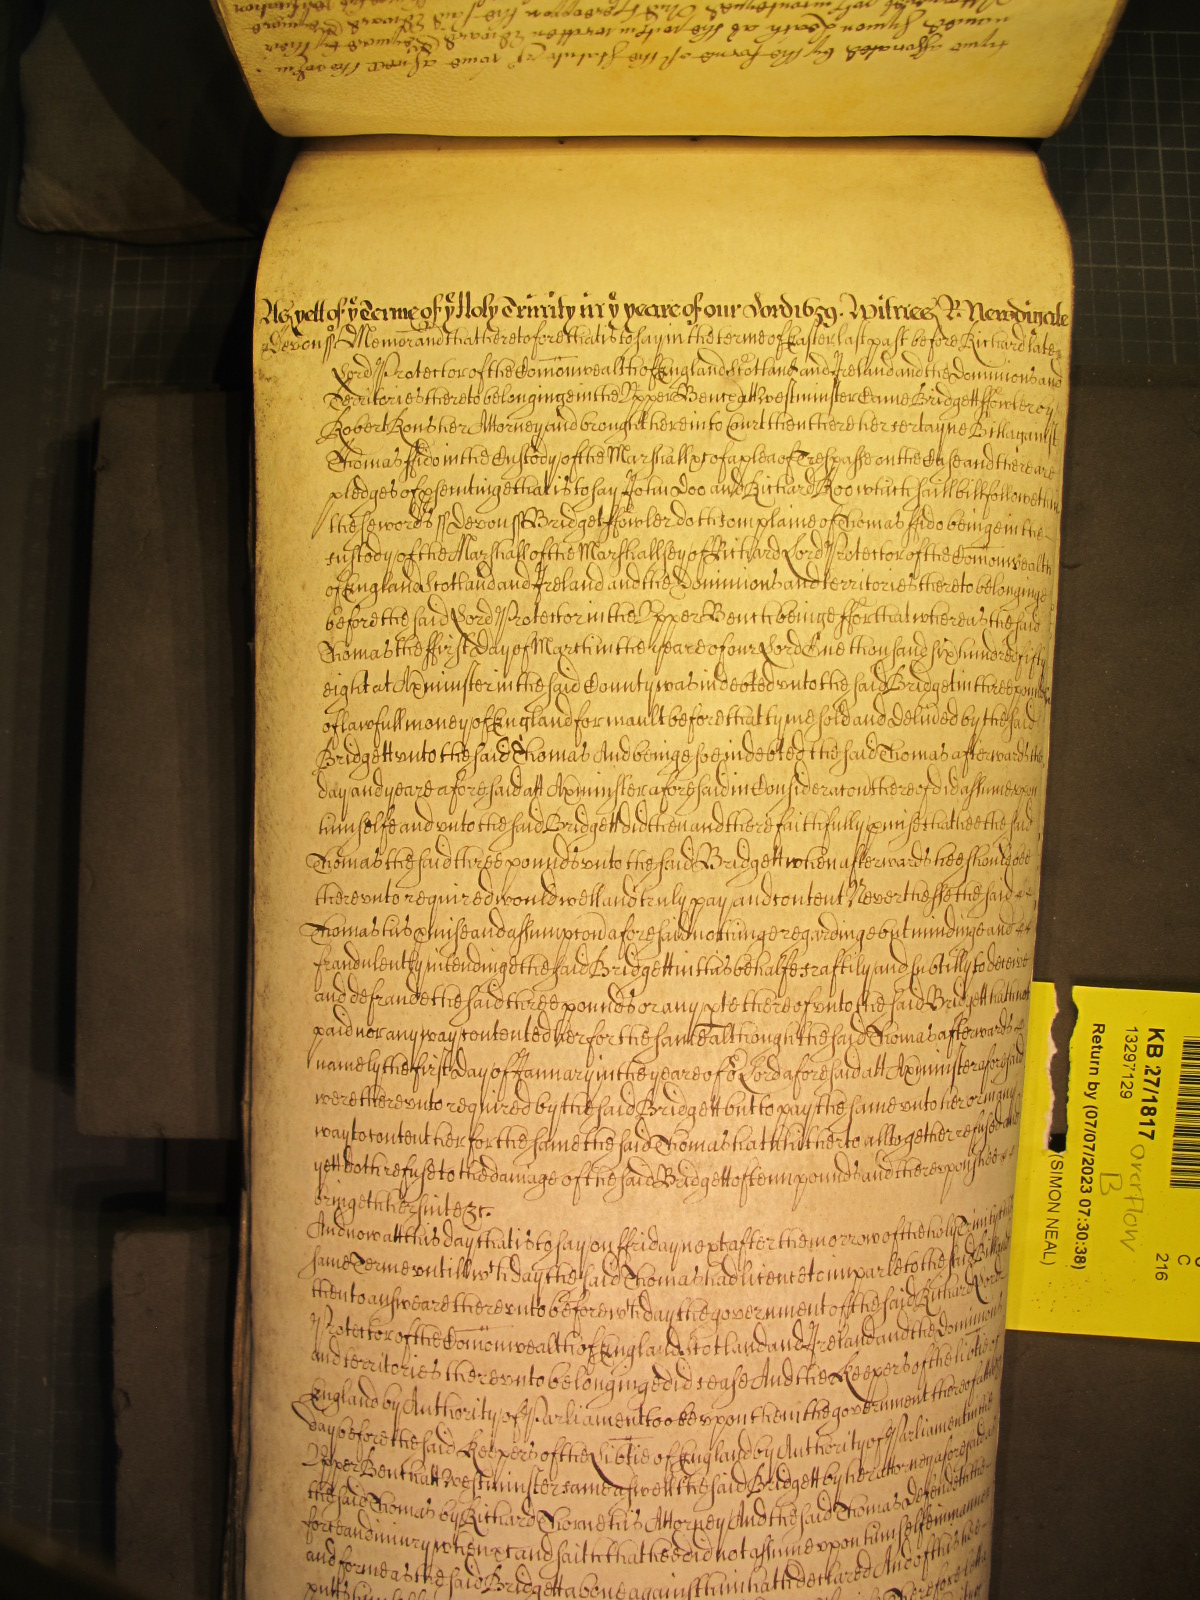 As yett of yᵉ Terme of yᵉ Holy Trinity in yᵉ yeare of our Lord 1659. Witnes R: Newdigate
Devon ss Memorand that heretofore that is to say in the terme of Easter last past before Richard late
Lord Protector of the Comonwealth of England Scotland and Ireland and the Dominions and
Territories thereto belonginge in the Upper Bench att Westminster Came Bridgett ffowler by
Robert Kons her Attorney and brought here into Court then there her certayne Bill against
Thomas ffido in the Custody of the Marshall &c of a plea of Trespasse on the Case and there are
pledges of psecutinge that is to say John Doo and Richard Roo which said bill followeth in
these words ss Devon ss Bridgett ffowler doth complaine of Thomas ffido beinge in the
custody of the Marshall of the Marshallsey of Richard Lord Protector of the Comonwealth
of England Scotland and Ireland and the Dominions and territories thereto belonginge
before the said Lord Protector in the Upper Bench beinge ffor that whereas the said
Thomas the ffirst day of March in the yeare of our Lord One thousand six hundred fifty
eight at Axminster in the said County was indebted unto the said Bridgett in three pounds
of lawfull money of England for mault before that tyme sold and delivred by the said
Bridgett unto the said Thomas And beinge soe indebted the said Thomas afterwards the
day and yeare aforesaid att Axminster aforesaid in Consideracon thereof did assume upon
himselfe and unto the said Bridgett did then and there faithfully pmise that hee the said
Thomas the said three pounds unto the said Bridgett when afterwards hee should bee
thereunto required would well and truly pay and content Neverthelesse the said
Thomas his pmise and assumpcon aforesaid nothinge regardinge but mindinge and
fraudulently intendinge the said Bridgett in this behalfe craftily and subtilly to deceive
and defraude the said three pounds or any pte thereof unto the said Bridgett hath not
paid nor any way contented her for the same although the said Thomas afterwards
namely the first day of January in the yeare of oʳ Lord aforesaid att Axminster aforesaid
were thereunto required by the said Bridgett but to pay the same unto her or in any
way to content her for the same the said Thomas hath hitherto altogether refused and
yett doth refuse to the damage of the said Bridgett of tenn pounds and thereupon shee
bringeth her suite &c.
And now att this day that is to say on ffriday next after the morrow of the holy Trinity this
same Terme untill wᶜʰ day the said Thomas had licence to imparle to the said Bill and
then to answeare thereunto before wᶜʰ day the government of the said Richard Lord
Protector of the Comonwealth of England Scotland and Ireland and the Dominions
and territories thereunto belonginge did cease And the Keepers of the libtie of
England by Authority of Parliament tooke upon them the government thereof att wᶜʰ
day before the said Keepers of the Libtie of England by Authority of Parliament in the
Upper Bench att Westminster came aswell the said Bridgett by her attorney aforesaid as
the said Thomas by Richard Thorne his Attorney And the said Thomas defendeth the
force and iniury when &c and saith that hee did not assume upon himselfe in manner
and forme as the said Bridgett above against him hath declared And of this hee
putts himselfe Therefore
KB 27/1817 overflow
B
13297129
Return by (07/07/2023 07:30:38)
(SIMON NEAL)
C
216